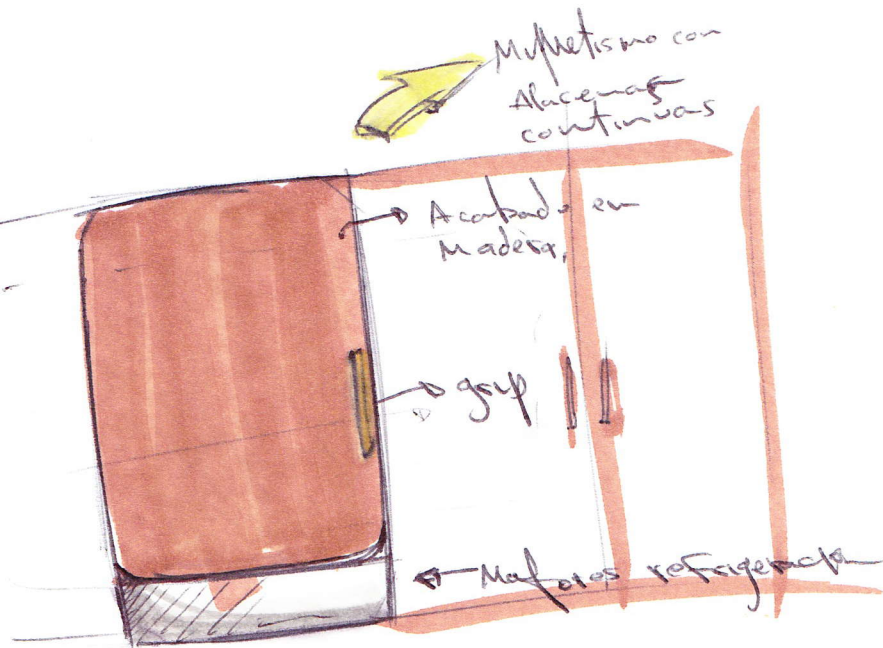 Mimetismo con
Alacenas
continuas
Acabado en
Madera,
grip
refrigeración